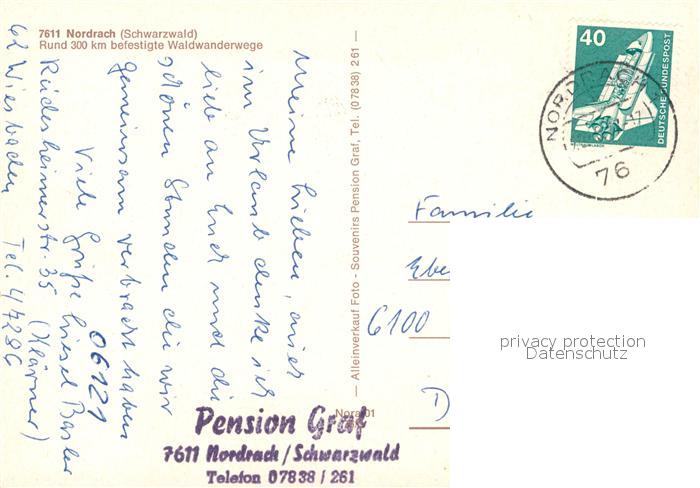 7611 Nordrach (Schwarzwald)
Rund 300 km befestigte Waldwanderwege
Meine Lieben, auch
im Urlaub denke ich
lieb an Euch und die
schönen Stunden die wir
gemeinsam verbracht haben
Viele Grüße Liesel Basler
Rüdesheimerstr. 35 (Klärner)
62 Wiesbaden Tel. 47286
06121
— Alleinverkauf Foto - Souvenirs Pension Graf, Tel. (07838) 261 —
40
DEUTSCHE BUNDESPOST
NORDRACH
76
Familie
Ebe
6100
D
Nora 01
Pension Graf
7611 Nordrach/Schwarzwald
Telefon 07838 / 261
privacy protection
Datenschutz